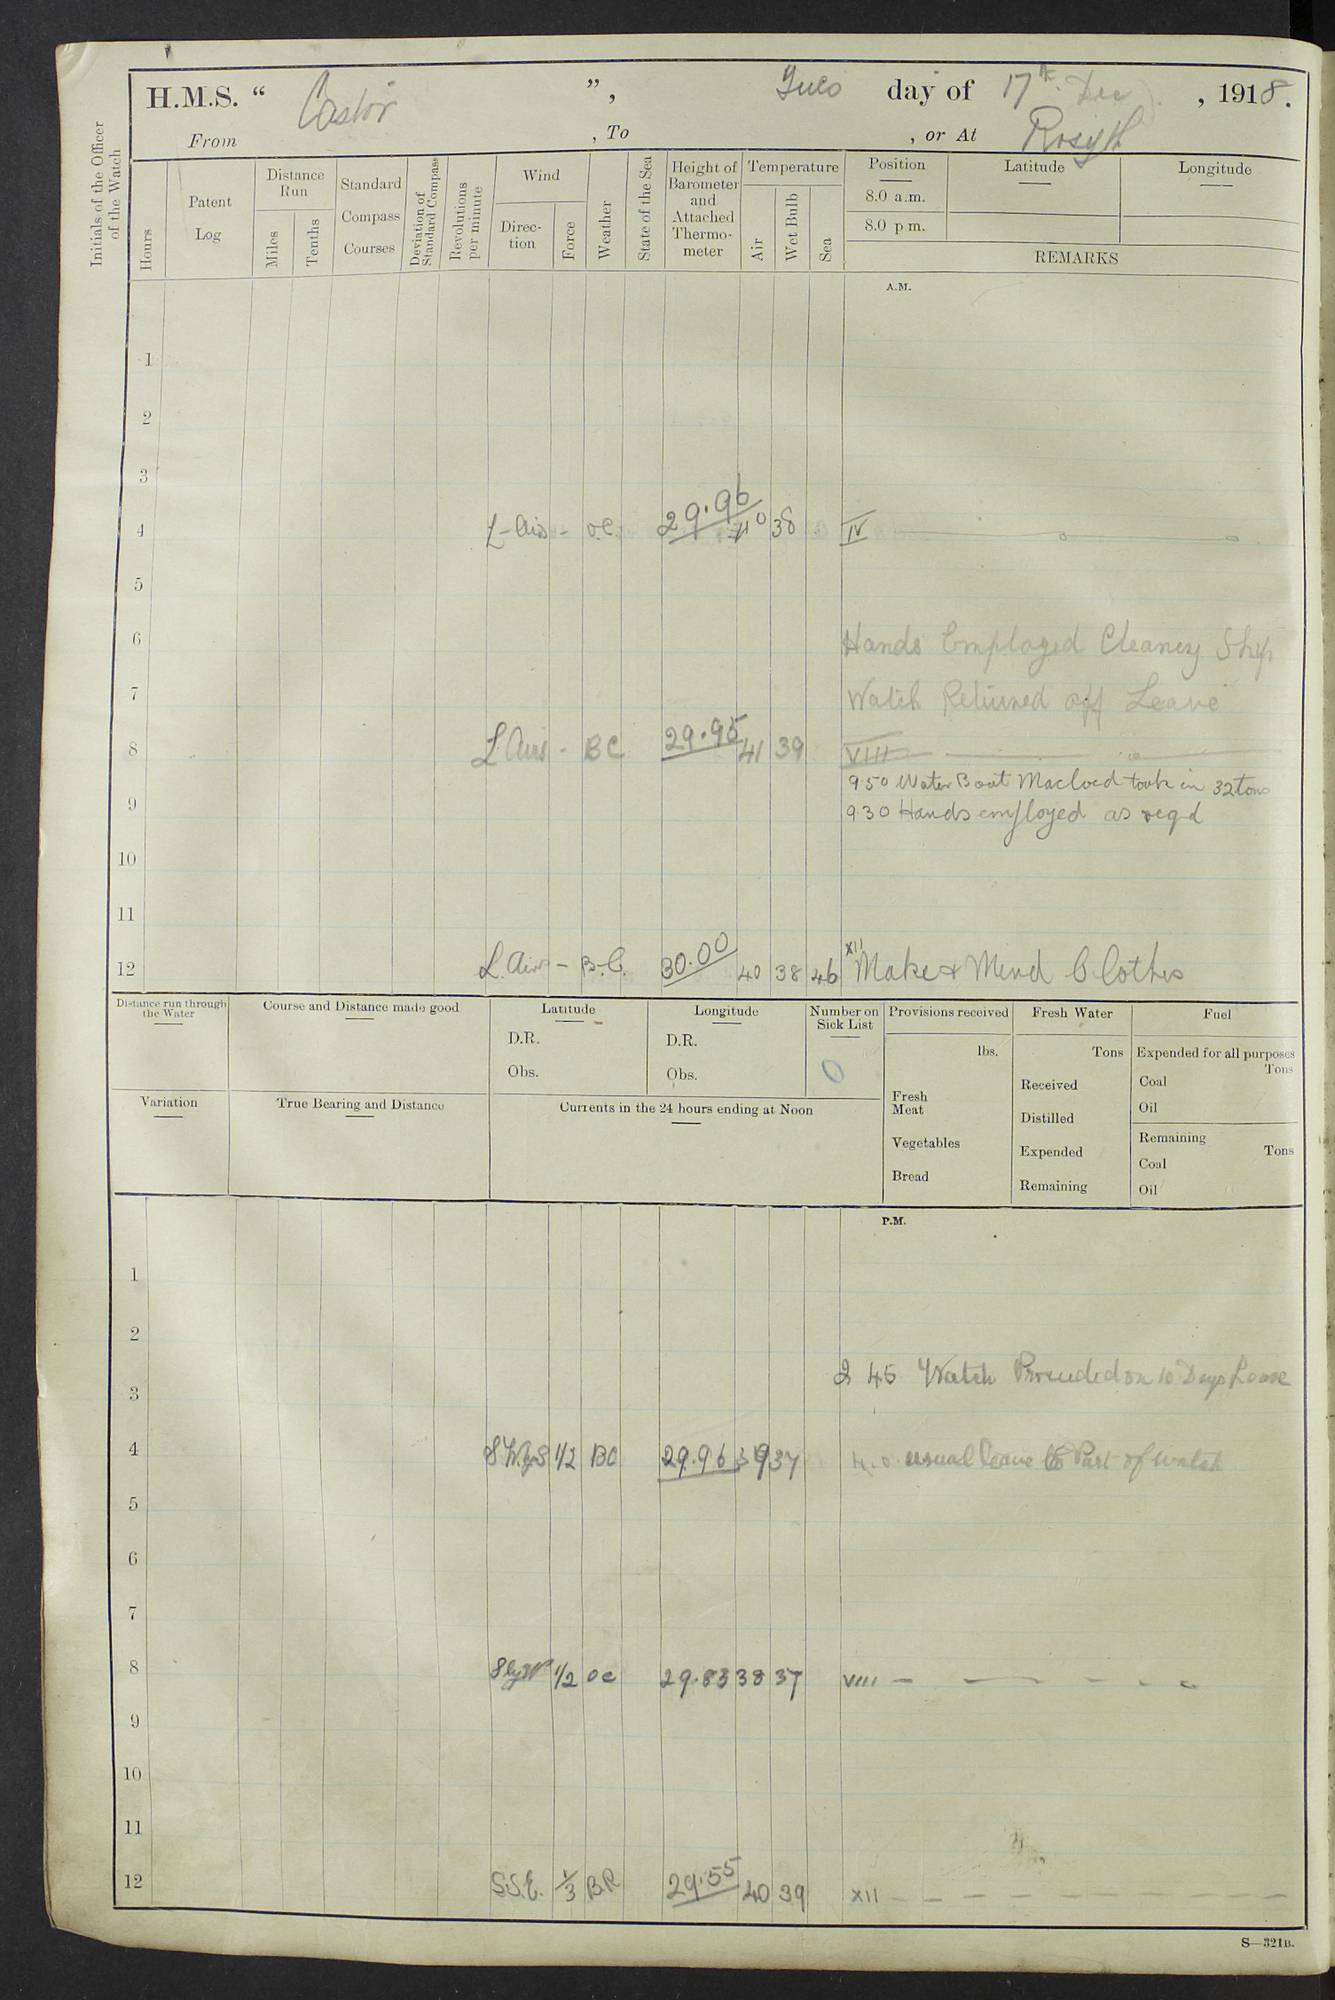 H.M.S. “ Castor ”, Tues day of 17th Dec, 1918.
From , To , or At Rosyth
Initials of the Officer of the Watch
Hours
Patent Log
Distance Run
Miles
Tenths
Standard Compass Courses
Deviation of Standard Compass
Revolutions per minute
Wind
Direction
Force
Weather
State of the Sea
Height of Barometer and Attached Thermometer
Temperature
Air
Wet Bulb
Sea
Position
8.0 a.m.
8.0 p m.
Latitude
Longitude
REMARKS
A.M.
1
2
3
4 L-Airs - O.C. 29.96 40 38 IV
5
6 Hands Employed Cleaning Ship
7 Watch Returned off Leave
8 L Airs - BC 29.95 41 39 VIII
9 50 Water Boat Macloed took in 32 tons
9 9.30 Hands employed as reqd
10
11
12 L. Airs - B.C. 30.00 40 38 46 XII Make & Mend Clothes
Distance run through the Water
Course and Distance made good
Latitude
D.R.
Obs.
Longitude
D.R.
Obs.
Number on Sick List
0
Provisions received
lbs.
Fresh Meat
Vegetables
Bread
Fresh Water
Tons
Received
Distilled
Expended
Remaining
Fuel
Expended for all purposes
Tons
Coal
Oil
Remaining
Tons
Coal
Oil
Variation
True Bearing and Distance
Currents in the 24 hours ending at Noon
P.M.
1
2
3 2 45 Watch Proceeded on 10 Days Leave
4 1/2 BC 29.96 39 37 4.0 usual leave to Part of watch
5
6
7
8 1/2 oc 29.83 38 37 VIII
9
10
11
12 S.S.E. 1/3 BR 29.55 40 39 XII
S—321B.